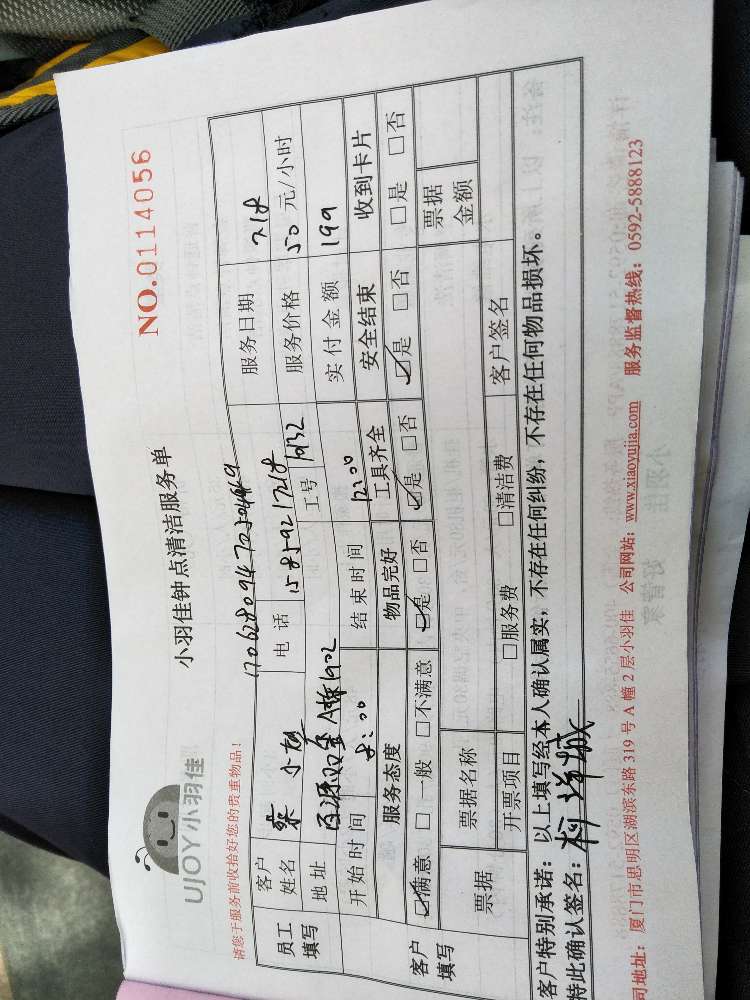 小羽佳钟点清洁服务单
NO.0114056
UJOY小羽佳
请您于服务前收拾好您的贵重物品！
员工填写
客户姓名 小姐 电话 15859217218 服务日期 7.18
地址 A1902 工号 1932 服务价格 50 元/小时
开始时间 8:00 结束时间 12:00 实付金额 199
客户填写
服务态度 物品完好 工具齐全 安全结束 收到卡片
☑满意 □一般 □不满意 ☑是 □否 ☑是 □否 ☑是 □否 □是 □否
票据 票据名称 票据金额
开票项目 □服务费 □清洁费 客户签名
客户特别承诺：以上填写经本人确认属实，不存在任何纠纷，不存在任何物品损坏。
特此确认签名：
司地址：厦门市思明区湖滨东路 319 号 A 幢 2 层小羽佳 公司网站：www.xiaoyujia.com 服务监督热线：0592-5888123